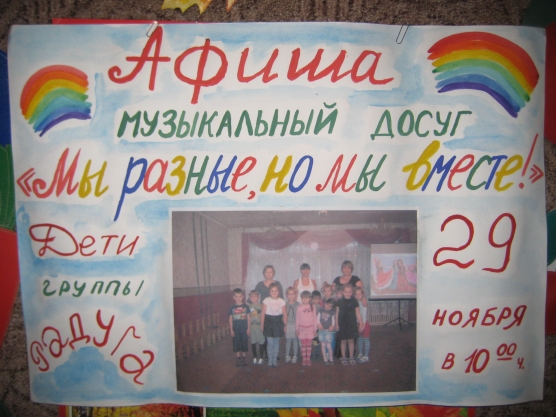 Афиша
МУЗЫКАЛЬНЫЙ ДОСУГ
«Мы разные, но мы вместе!»
Дети
группы
Радуга
29
НОЯБРЯ
в 10 00 ч.